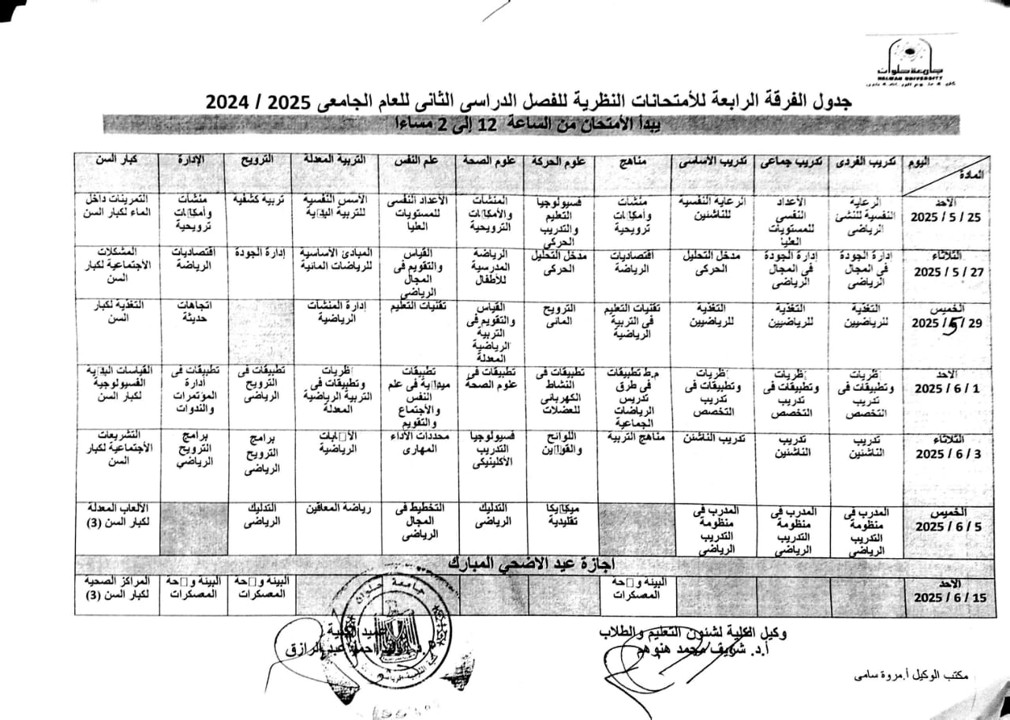 جامعة حلوان
HELWAN UNIVERSITY
جدول الفرقة الرابعة للأمتحانات النظرية للفصل الدراسى الثانى للعام الجامعى 2025 / 2024
يبدأ الأمتحان من الساعة 12 إلى 2 مساءا
اليوم المادة تدريب الفردى تدريب جماعى تدريب الأساسى مناهج علوم الحركة علوم الصحة علم النفس التربية المعدلة الترويح الإدارة كبار السن
الأحد 25 / 5 / 2025
الرعاية النفسية للنشئ الرياضى
الأعداد النفسى للمستويات العليا
الرعاية النفسية للناشئين
منشات ترويحية
فسيولوجيا التعليم والتدريب الحركى
المنشات الترويحية
الأعداد النفسى للمستويات العليا
الأسس النفسية للتربية
تربية كشفية
منشات ترويحية
التمرينات داخل الماء لكبار السن
الثلاثاء 27 / 5 / 2025
إدارة الجودة فى المجال الرياضى
إدارة الجودة فى المجال الرياضى
مدخل التحليل الحركى
اقتصاديات الرياضة
مدخل التحليل الحركى
الرياضة المدرسية للأطفال
القياس والتقويم فى المجال الرياضى
المبادئ الأساسية للرياضات المائية
إدارة الجودة
اقتصاديات الرياضة
المشكلات الأجتماعية لكبار السن
الخميس 29 / 5 / 2025
التغذية للرياضيين
التغذية للرياضيين
التغذية للرياضيين
تقنيات التعليم فى التربية الرياضية
الترويح المائى
القياس والتقويم فى التربية الرياضية المعدلة
تقنيات التعليم
إدارة المنشات الرياضية
اتجاهات حديثة
التغذية لكبار السن
الأحد 1 / 6 / 2025
وتطبيقات فى تدريب التخصص
وتطبيقات فى تدريب التخصص
وتطبيقات فى تدريب التخصص
م.ط تطبيقات فى طرق تدريس الرياضات الجماعية
تطبيقات فى النشاط الكهربائى للعضلات
تطبيقات فى علوم الصحة
تطبيقات فى علم النفس والأجتماع والتقويم
وتطبيقات فى التربية الرياضية المعدلة
تطبيقات فى الترويح الرياضى
تطبيقات فى أدارة المؤتمرات والندوات
القياسات الفسيولوجية لكبار السن
الثلاثاء 3 / 6 / 2025
تدريب الناشئين
تدريب الناشئين
تدريب الناشئن
مناهج التربية
اللوائح
فسيولوجيا التدريب الأكلينيكى
محددات الأداء المهارى
الرياضية
برامج الترويح الرياضى
برامج الترويح الرياضي
التشريعات الأجتماعية لكبار السن
الخميس 5 / 6 / 2025
المدرب فى منظومة التدريب الرياضى
المدرب فى منظومة التدريب الرياضى
المدرب فى منظومة التدريب الرياضى
تقليدية
التدليك الرياضى
التخطيط فى المجال الرياضى
رياضة المعاقين
التدليك الرياضى
الألعاب المعدلة لكبار السن (3)
اجازة عيد الاضحي المبارك
الأحد 15 / 6 / 2025
البيئة المعسكرات
البيئة المعسكرات
البيئة المعسكرات
المراكز الصحية لكبار السن (3)
وكيل الكلية لشئون التعليم والطلاب
أ.د. شريف محمد
مكتب الوكيل أ.مروة سامى